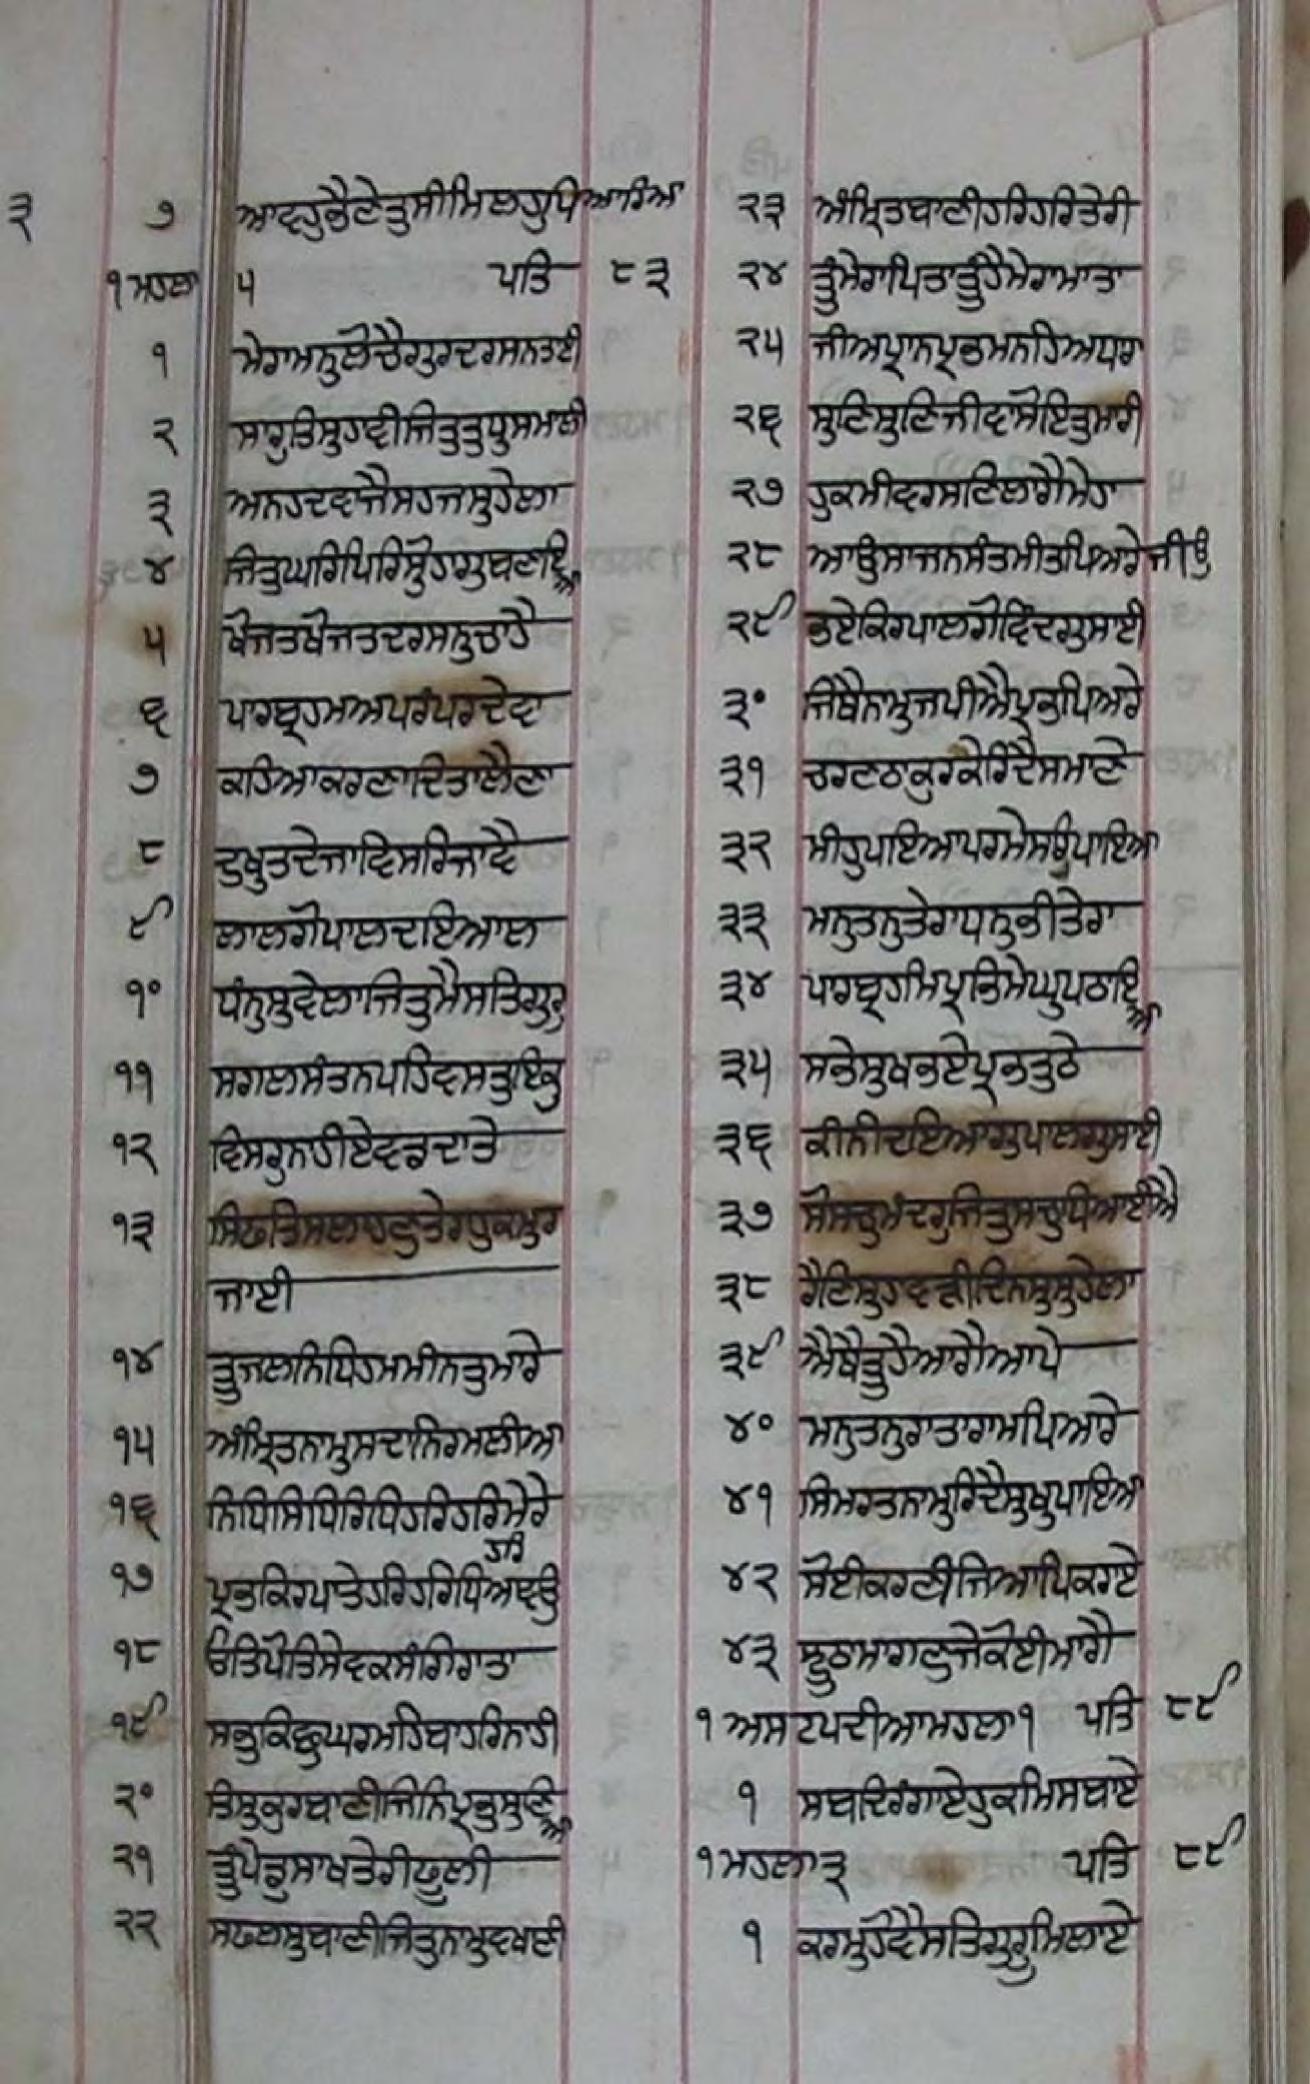 ੩
੭ ਆਵਹੁਭੈਣੇਤੁਸੀਮਿਲਹੁਪਿਆਰੀਆ
੧ ਮਹਲਾ ੫ ਪਤਿ ੮੩
੧ ਮੇਰਾਮਨੁਲੋਚੈਗੁਰਦਰਸਨਤਾਈ
੨ ਸਾਰੁਤਿਸੁਹਾਵੀਜਿਤੁਤੁਧੁਸਮਾਲੀ
੩ ਅਨਹਦਵਾਜੈਸਹਜਸੁਹੇਲਾ
੪ ਜਿਤੁਘਰਿਪਿਰਿਸੋਹਾਗੁਬਣਾਇਆ
੫ ਖੋਜਤਖੋਜਤਦਰਸਨੁਚਾਹੇ
੬ ਪਾਰਬ੍ਰਹਮਅਪਰੰਪਰਦੇਵਾ
੭ ਕਹਿਆਕਰਣਾਦਿਤਾਲੈਣਾ
੮ ਦੁਖੁਤਦੇਜਾਵਿਸਰਿਜਾਵੈ
੯ ਲਾਲਗੋਪਾਲਦਇਆਲ
੧੦ ਧੰਨੁਸੁਵੇਲਾਜਿਤੁਮੈਸਤਿਗੁਰੁ
੧੧ ਸਗਲਸੰਤਨਪਹਿਵਸਤੁਇਕੁ
੧੨ ਵਿਸਰੁਨਾਹੀਏਵਡਦਾਤੇ
੧੩ ਸਿਫਤਿਸਲਾਹਣੁਤੇਰਾਹੁਕਮੁਰ
ਜਾਈ
੧੪ ਤੂਜਲਨਿਧਿਹਮਮੀਨਤੁਮਾਰੇ
੧੫ ਅੰਮ੍ਰਿਤਨਾਮੁਸਦਾਨਿਰਮਲੀਆ
੧੬ ਨਿਧਿਸਿਧਿਰਿਧਿਹਰਿਹਰਿਮੇਰੇ
ਹਰਿ
੧੭ ਪ੍ਰਭਕਿਰਪਾਤੇਹਰਿਹਰਿਧਿਆਵਉ
੧੮ ਓਤਿਪੋਤਿਸੇਵਕਸੰਗਿਰਾਤਾ
੧੯ ਸਭੁਕਿਛੁਘਰਮਹਿਬਾਹਰਿਨਾਹੀ
੨੦ ਤਿਸੁਕੁਰਬਾਣੀਜਿਨਿਪ੍ਰਭੁਸੁਣਿਆ
੨੧ ਤੂੰਪੇਡੁਸਾਖਤੇਰੀਫੂਲੀ
੨੨ ਸਫਲਸੁਬਾਣੀਜਿਤੁਨਾਮੁਵਖਾਣੀ
੨੩ ਅੰਮ੍ਰਿਤਬਾਣੀਹਰਿਹਰਿਤੇਰੀ
੨੪ ਤੂੰਮੇਰਾਪਿਤਾਤੂੰਹੈਮੇਰਾਮਾਤਾ
੨੫ ਜੀਅਪ੍ਰਾਨਪ੍ਰਭਮਨਹਿਅਧਾਰਾ
੨੬ ਸੁਣਿਸੁਣਿਜੀਵਾਸੋਇਤੁਮਾਰੀ
੨੭ ਹੁਕਮੀਵਰਸਣਿਲਾਗੇਮੇਹਾ
੨੮ ਆਉਸਾਜਨਸੰਤਮੀਤਪਿਅਰੇਜੀਉ
੨੯ ਭਏਕਿਰਪਾਲਗੋਵਿੰਦਗੁਸਾਈ
੩੦ ਜਿਥੈਨਾਮੁਜਪੀਐਪ੍ਰਭਪਿਅਰੇ
੩੧ ਚਰਣਠਾਕੁਰਕੇਰਿਦੈਸਮਾਣੇ
੩੨ ਮੀਹੁਪਾਇਆਪਰਮੇਸਰੁਪਾਇਆ
੩੩ ਮਨੁਤਨੁਤੇਰਾਧਨੁਭੀਤੇਰਾ
੩੪ ਪਾਰਬ੍ਰਹਮਿਪ੍ਰਭਿਮੇਘੁਪਠਾਇਆ
੩੫ ਸਭੇਸੁਖਭਏਪ੍ਰਭਤੁਠੇ
੩੬ ਕੀਨੀਦਇਆਗੁਪਾਲਗੁਸਾਈ
੩੭ ਸੋਸਚੁਮੰਦਰੁਜਿਤੁਸਚੁਧਿਆਈਐ
੩੮ ਰੈਣਿਸੁਹਾਵੜੀਦਿਨਸੁਸੁਹੇਲਾ
੩੯ ਐਥੈਤੂਹੈਆਗੈਆਪੇ
੪੦ ਮਨੁਤਨੁਰਾਤਾਰਾਮਪਿਆਰੇ
੪੧ ਸਿਮਰਤਨਾਮੁਰਿਦੈਸੁਖੁਪਾਇਆ
੪੨ ਸੋਈਕਰਣੀਜਿਆਪਿਕਰਾਏ
੪੩ ਝੂਠਾਮਾਗਣੁਜੇਕੋਈਮਾਗੈ
੧ ਅਸਟਪਦੀਆਮਹਲਾ੧ ਪਤਿ ੮੯
੧ ਸਬਦਿਰੰਗਾਏਹੁਕਮਿਸਬਾਏ
੧ਮਹਲਾ੩ ਪਤਿ ੮੯
੧ ਕਰਮੁਹੋਵੈਸਤਿਗੁਰੂਮਿਲਾਏ